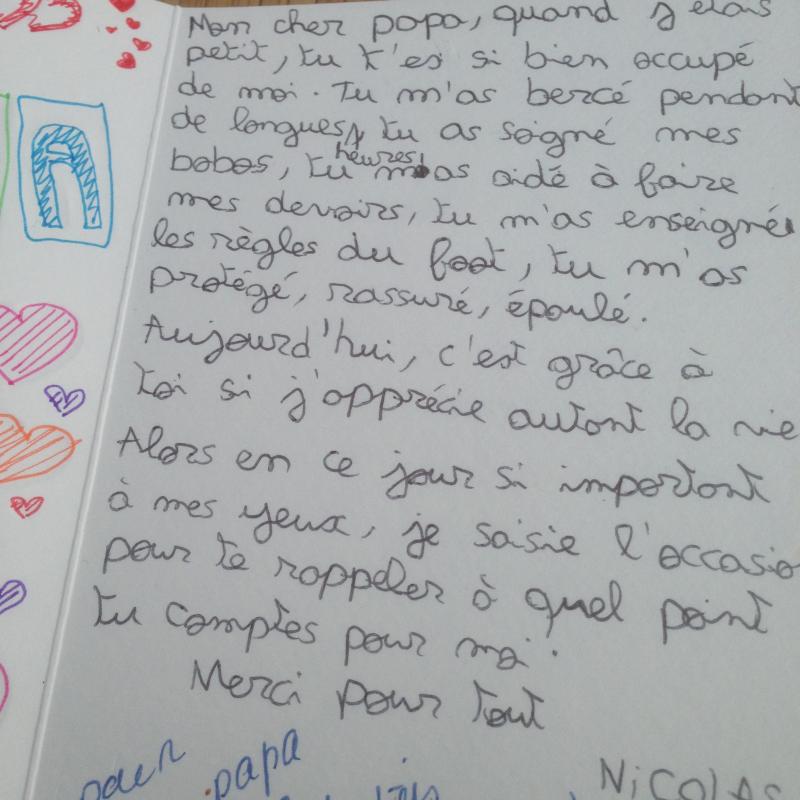 Mon cher papa, quand j'étais
petit, tu t'es si bien occupé
de moi. Tu m'as bercé pendant
de longues, tu as soigné mes
heures
bobos, tu m'as aidé à faire
mes devoirs, tu m'as enseigné
les règles du foot, tu m'as
protégé, rassuré, époulé.
Aujourd'hui, c'est grâce à
toi si j'apprécie autant la vie
Alors en ce jour si important
à mes yeux, je saisie l'occasio
pour te rappeler à quel point
tu comptes pour moi.
Merci pour tout
papa
NiCOLAS